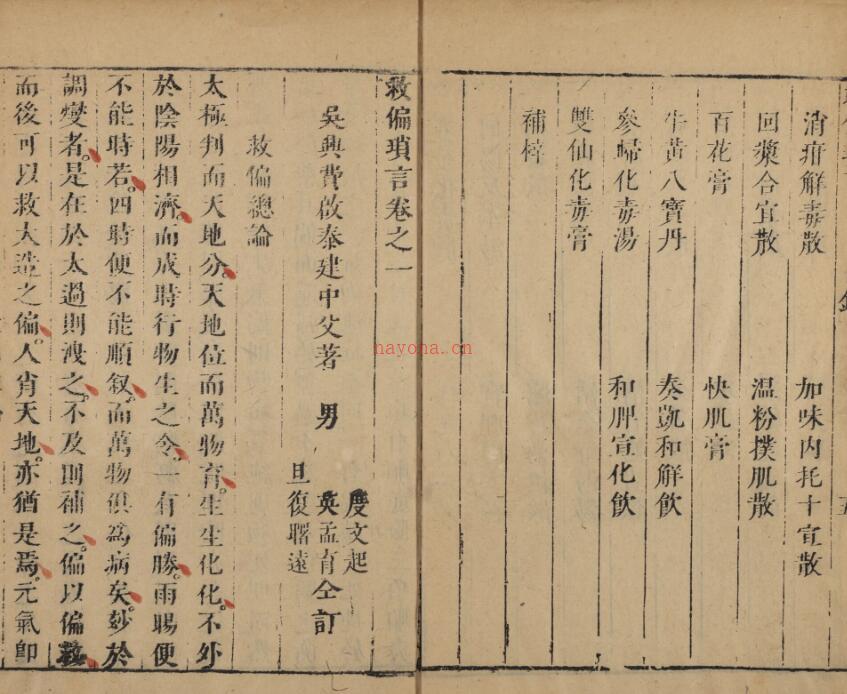 消疳解毒散　加味内托十宣散
回漿合宜散　温粉撲肌散
百花膏　快肌膏
牛黄八寶丹　奏凱和解飲
參歸化毒湯　和脾宣化飲
雙仙化毒膏
補梓
救偏瑣言卷之一
吳興費啟泰建中父著　男
慶文起
英孟育仝訂
旦復曙遠
救偏總論
太極判而天地分。天地位而萬物育。生生化化。不外
於陰陽相濟。而成時行物生之令。一有偏勝。雨暘便
不能時若。四時便不能順叙。而萬物俱為病矣。妙於
調燮者。是在於太過則洩之。不及則補之。偏以偏救
而後可以救大造之偏。人肖天地。亦猶是焉。元氣卽
nayona.cn